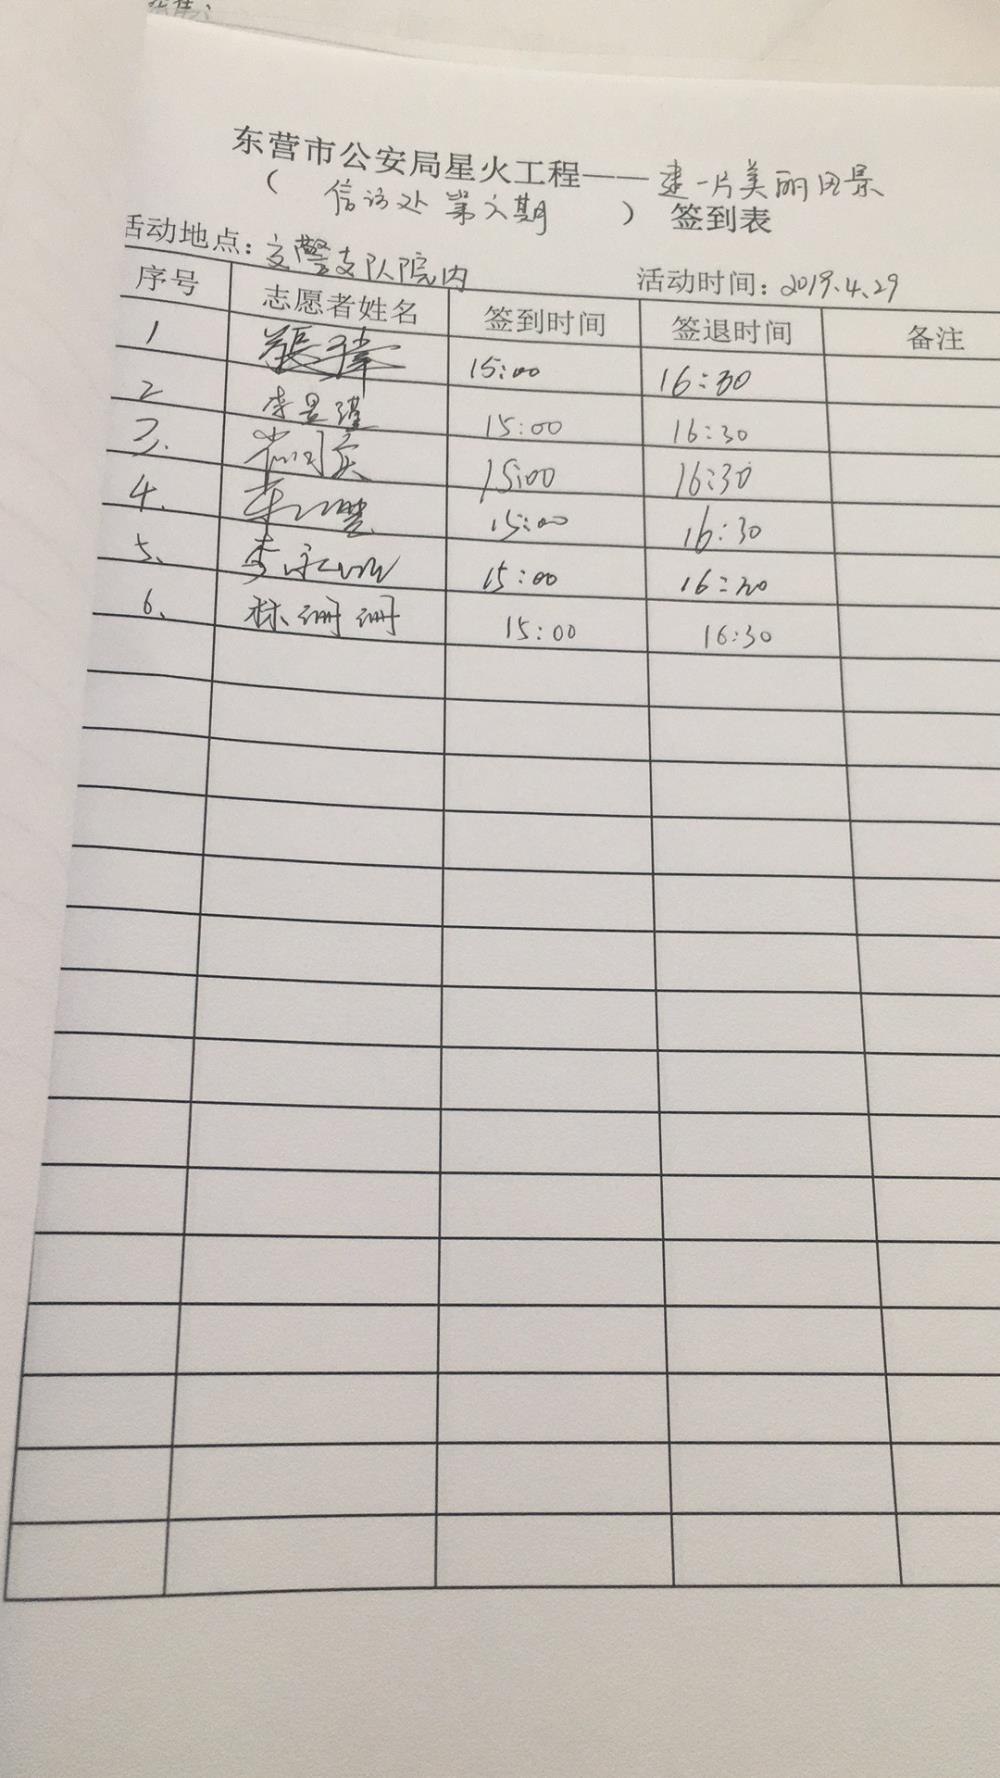 东营市公安局星火工程——建一片美丽风景
（ 信访处第六期 ）签到表
活动地点：交警支队院内 活动时间：2019.4.29
序号 志愿者姓名 签到时间 签退时间 备注
1 15:00 16:30
2 李昱瑾 15:00 16:30
3. 15:00 16:30
4. 15:00 16:30
5、 15:00 16:30
6、 林珊珊 15:00 16:30